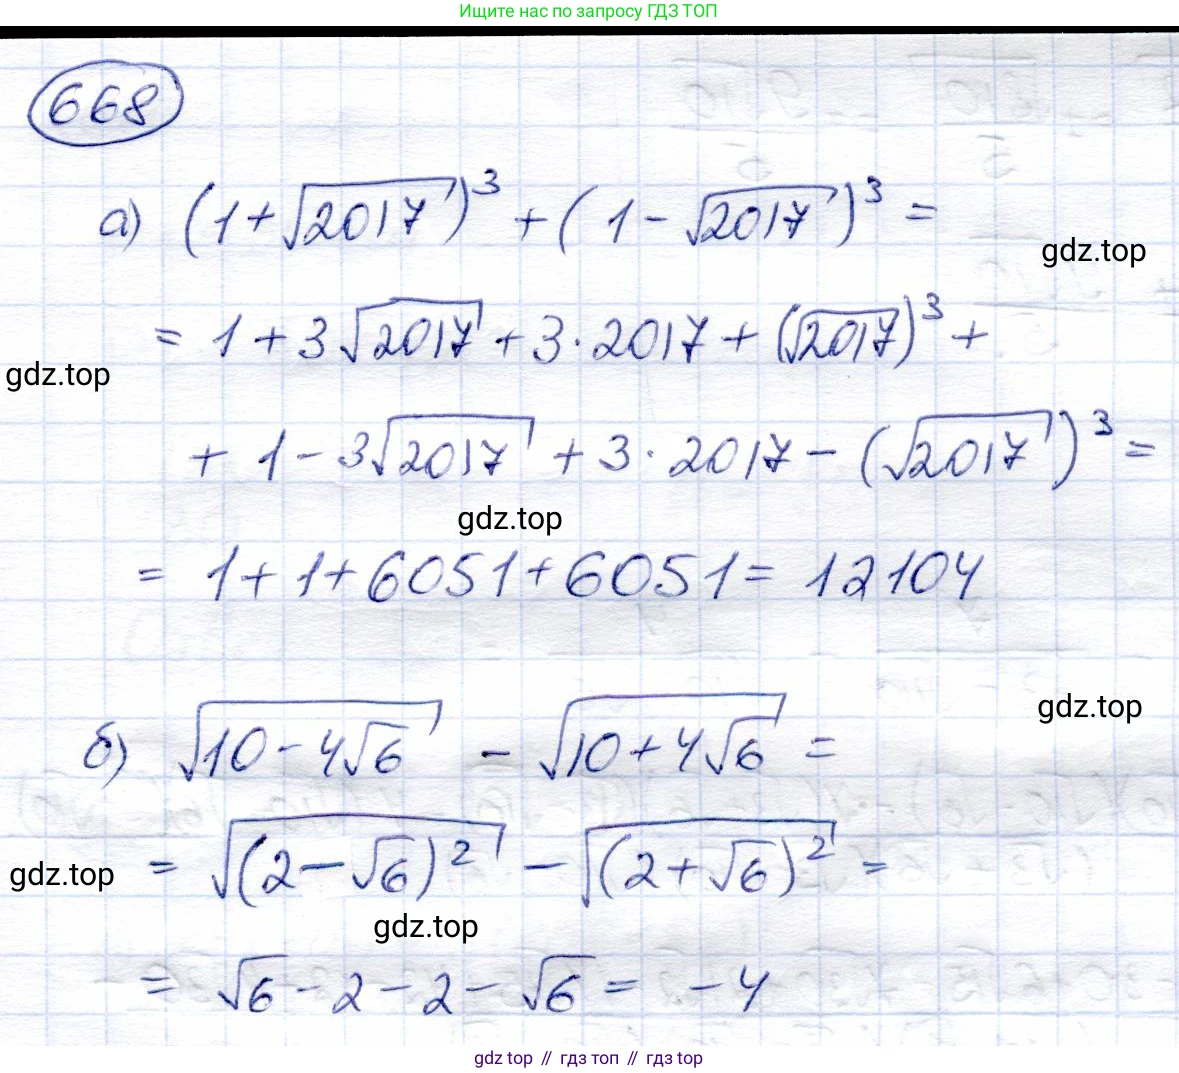 Ищите нас по запросу ГДЗ ТОП
668
а) (1+√2017)³ + (1-√2017)³ =
gdz.top
= 1 + 3√2017 + 3·2017 + (√2017)³ +
gdz.top
+ 1 - 3√2017 + 3·2017 - (√2017)³ =
gdz.top
= 1 + 1 + 6051 + 6051 = 12104
gdz.top
б) √(10-4√6) - √(10+4√6) =
= √((2-√6)²) - √((2+√6)²) =
gdz.top
gdz.top
= √6 - 2 - 2 - √6 = -4
gdz top // гдз топ // гдз top